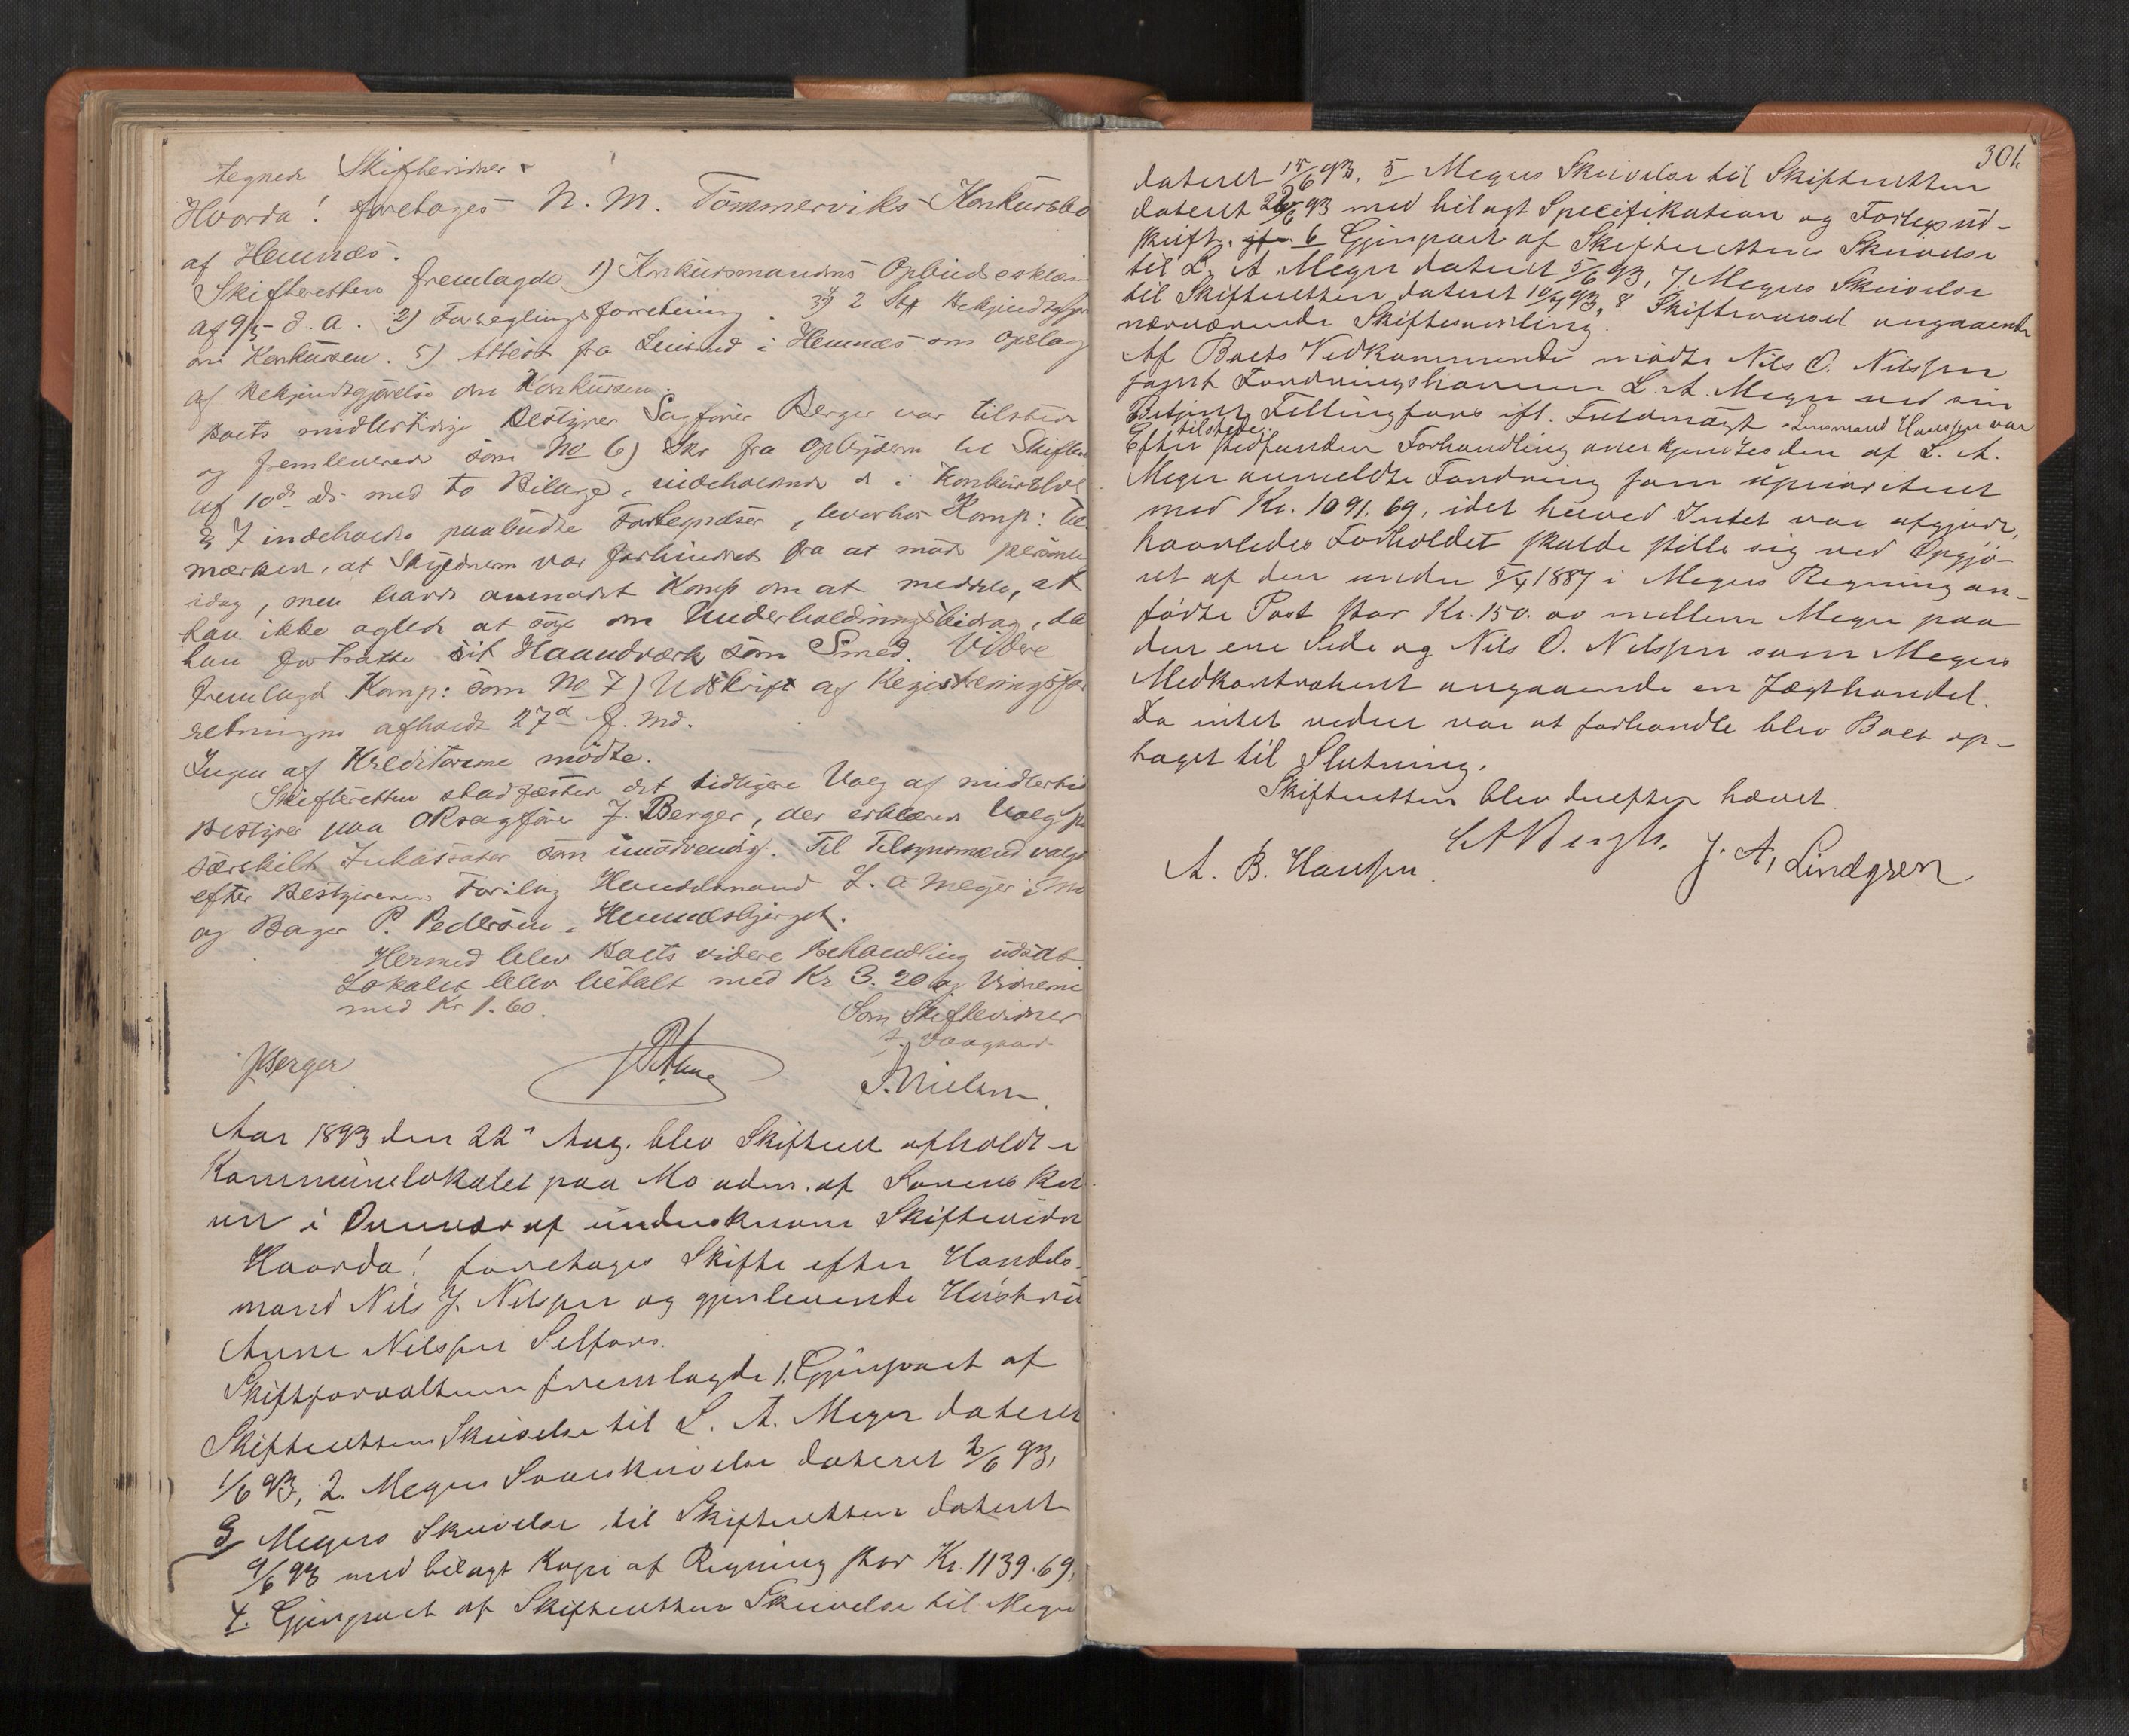 tegnede Skiftevidner.
Hvorda! foretoges N. M. Tömmerviks Konkursbo
af Hemnæs.
Skifteretten fremlagde 1) Konkursmandens Opbudserklæring
af 9/5 d. A. 2) Forseglingsforretning. 3) 2 Stk Bekjendtgj
om Konkursen. 5) Attest fra Lensmd i Hemnæs om Opslag
af Bekjendtgjörelse om Konkursen.
Boets midlertidige Bestyrer Sagförer Berger var tilstede
og fremleverede som No 6) Skr fra Opbyderen til Skifter
af 10de ds med to Bilage, indeholdende de i Konkursl
§ 7 indeholdte paabudte Fortegnelser, hvorhos Komp: be
mærkede, at Skyldneren var forhindret fra at möde personlig
idag, men havde anmodet Komp om at meddele, at
han ikke agtede at söge om Underholdningsbidrag, da
han fortsatte sit Haandværk som Smed. Videre
fremlagd Komp: som No 7) Udskrift af Registreringsfor
retningen afholdt 27d f. Md.
Ingen af Kreditorerne mödte.
Skifteretten stadfæster det tidligere Valg af midlertid
Bestyrer paa ORsagförer J. Berger, der erklærede Valg
særskilt Inkassator som unödvendig. Til Tilsynsmænd valgt
efter Bestyrerens Forslag Handelsmand L. A Meyer i Mo
og Bager P. Pedersen, Hemnæsbjerget.
Hermed blev Boets videre Behandling udsat
Lokalet blev betalt med Kr 3.20 og Vidnerne
med Kr 1.60.
Som Skiftevidner
J. Vaagaard
JBerger
S. Nielsen.
Aar 1893 den 22de Aug. blev Skifteret afholdt i
Kommunelokalet paa Mo adm. af Sorenskri
ver i Overvær af underskrevne Skiftevidn
Hvorda! foretoges Skifte efter Handels-
mand Nils J. Nilssen og gjenlevende Hustru
Anne Nilssen Selfors.
Skifteforvalteren fremlagde 1. Gjenpart af
Skifterettens Skrivelse til L. A. Meyer dateret
1/6 93, 2. Meyers Svarskrivelse dateret 2/6 93,
3 Meyers Skrivelse til Skifteretten dateret
9/6 93 med bilagt Kopi af Regning stor Kr. 1139.69,
4. Gjenpart af Skifterettens Skrivelse til Meyer
301.
dateret 15/6 93, 5 Meyers Skrivelse til Skifteretten
dateret 26/6 93 med bilagt Specifikation og Forligsud-
skrift, 6 Gjenpart af Skifterettens Skrivelse
til L. A. Meyer dateret 5/6 93, 7. Meyers Skrivelse
til Skifteretten dateret 10/7 93, 8 Skiftevarsel angaaende
nærværende Skiftesamling.
Af Boets Vedkommende mödte Nils O. Nilssen
samt Fordringshaveren L. A. Meyer ved sin
Betjent Fellingfors ifl. Fuldmagt. Lensmand Hanssen var
tilstede.
Efter stedfunden Forhandling anerkjendtes den af L. A.
Meyer anmeldte Fordring som uprioriteret
med Kr. 1091.69, idet herved Intet var afgjort,
hvorledes Forholdet skulde stille sig ved Opgjö-
ret af den under 5/4 1887 i Meyers Regning an-
förte Post stor Kr. 150.00 mellem Meyer paa
den ene Side og Nils O. Nilssen som Meyers
Medkontrahent angaaende en Jægthandel.
Da intet videre var at forhandle blev Boet op-
taget til Slutning.
Skifteretten blev derefter hævet.
A. B. Hanssen. J. A. Lindgren.